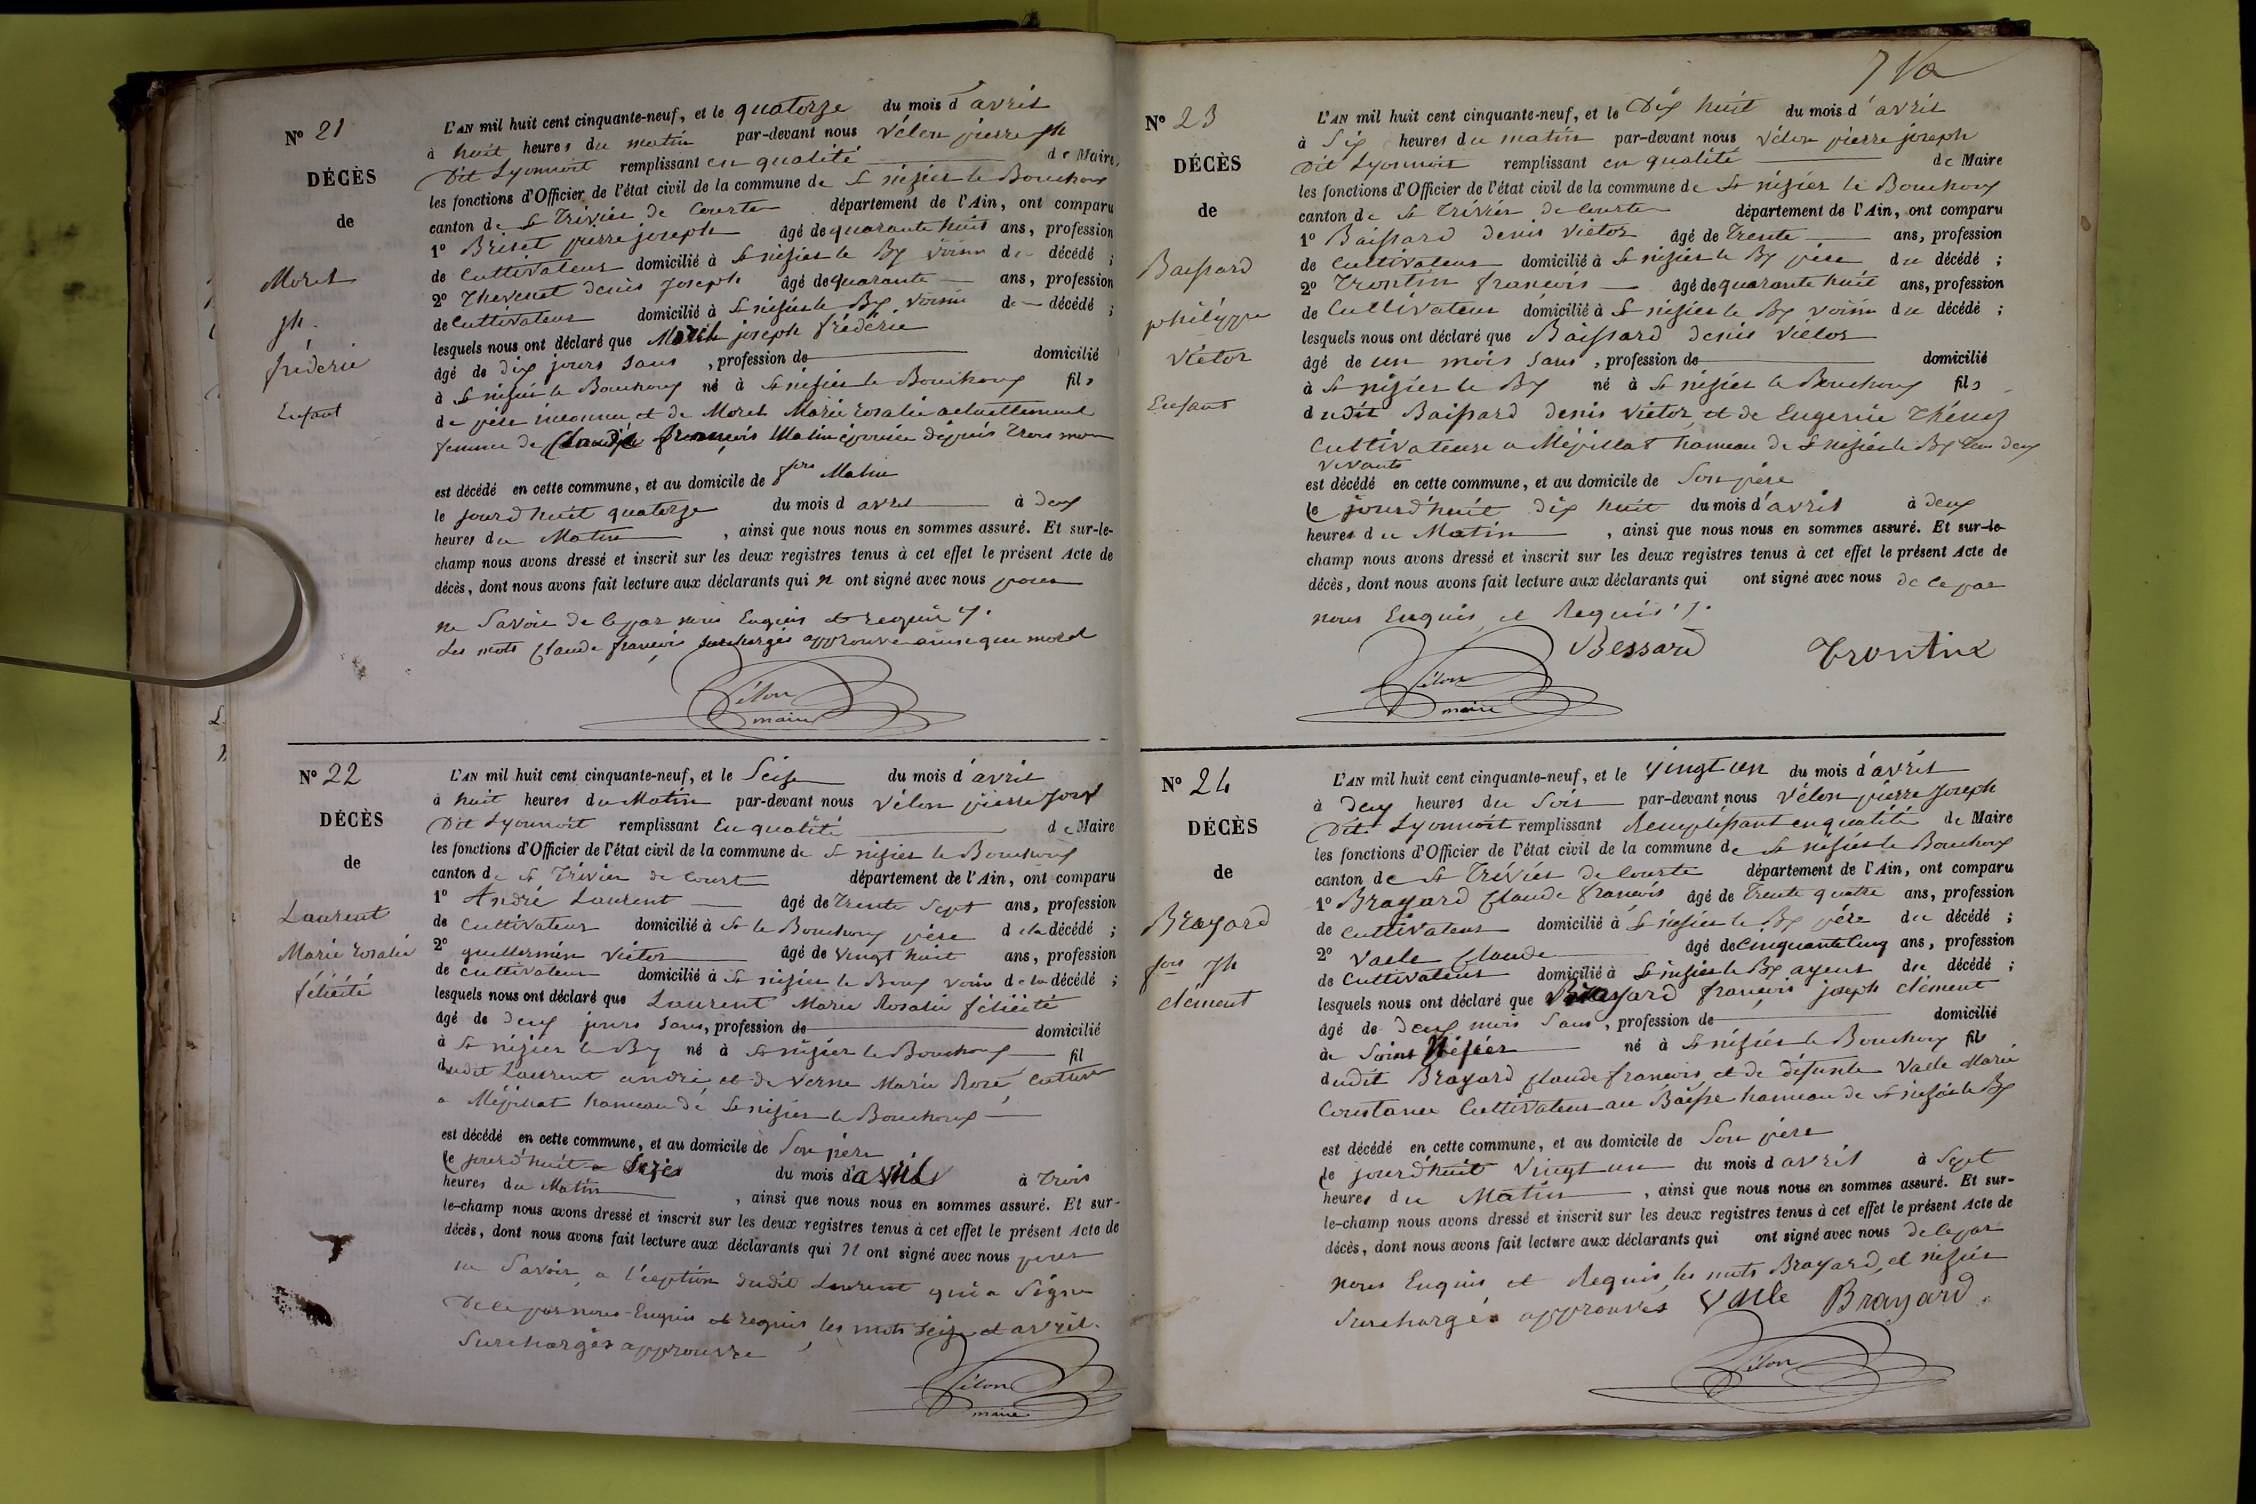 N° 21
DÉCÈS
de
Morel
jh.
fréderic
Enfant
L'AN mil huit cent cinquante-neuf, et le quatorze du mois d'avril
à huit heures du matin par-devant nous Vélon pierre jh
Dit Lyonnoit remplissant en qualité de Maire,
les fonctions d'Officier de l'état civil de la commune de St nizier le Bouchoux
canton de St Trivier de Courte département de l'Ain, ont comparu
1° Brivet pierre joseph âgé de quarante huit ans, profession
de Cultivateur domicilié à St nizier le Bx voisin du décédé ;
2° Thevenet denis Joseph âgé de quarante ans, profession
de Cultivateur domicilié à St nizier le Bx voisin du décédé ;
lesquels nous ont déclaré que Morel joseph fréderic
âgé de dix jours sans , profession de domicilié
à St nizier le Bouchoux né à St nizier le Bouchoux fils
de père inconnu et de Morel Marie rosalie actuellement
femme de Claude françois Matin épousée depuis trois mois
est décédé en cette commune, et au domicile de fois Matin
le jourd'huit quatorze du mois d avril à deux
heures du Matin , ainsi que nous nous en sommes assuré. Et sur-le-
champ nous avons dressé et inscrit sur les deux registres tenus à cet effet le présent Acte de
décès, dont nous avons fait lecture aux déclarants qui n ont signé avec nous pour
ne Savoir de ce par nous Enquis et requis /.
Les mots Claude françois surchargés approuvé ainsi que morel
Vélon
maire
N° 22
DÉCÈS
de
Laurent
Marie rosalie
félicité
L'AN mil huit cent cinquante-neuf, et le Seize du mois d'avril
à huit heures du Matin par-devant nous Vélon pierre Josph
Dit Lyonnoit remplissant En qualité de Maire
les fonctions d'Officier de l'état civil de la commune de St nizier le Bouchoux
canton de St Trivier de Court département de l'Ain, ont comparu
1° André Laurent âgé de Trente Sept ans, profession
de Cultivateur domicilié à St le Bouchoux père de la décédé ;
2° guillermin Victor âgé de Vingt huit ans, profession
de Cultivateur domicilié à St nizier le Boux voisin de la décédé ;
lesquels nous ont déclaré que Laurent Marie Rosalie félicité
âgé de deux jours sans, profession de domicilié
à St nizier le Bx né à St nizier le Bouchoux fil
dudit Laurent andré et de Verne Marie Rose, Cultivr
a Méjillat hameau de St nizier le Bouchoux
est décédé en cette commune, et au domicile de Son père
le jourd'huit Seize du mois d'avril à Trois
heures du Matin , ainsi que nous nous en sommes assuré. Et sur-
le-champ nous avons dressé et inscrit sur les deux registres tenus à cet effet le présent Acte de
décès, dont nous avons fait lecture aux déclarants qui n ont signé avec nous pour
ne Savoir, a l'éception dudit Laurent qui a Signé
De ce par nous Enquis et requis les mots Seize et avril.
Surchargés approuvé
Vélon
maire
7 Va
N° 23
DÉCÈS
de
Baissard
philippe
Victor
Enfant
L'AN mil huit cent cinquante-neuf, et le Dix huit du mois d'avril
à Six heures du matin par-devant nous Vélon pierre joseph
Dit Lyonnoit remplissant en qualité de Maire
les fonctions d'Officier de l'état civil de la commune de St nizier le Bouchoux
canton de St Trivier de Courte département de l'Ain, ont comparu
1° Baissard denis Victor âgé de Trente ans, profession
de Cultivateur domicilié à St nizier le Bx père du décédé ;
2° Trontin françois âgé de quarante huit ans, profession
de Cultivateur domicilié à St nizier le Bx voisin du décédé ;
lesquels nous ont déclaré que Baissard denis Victor
âgé de un mois sans , profession de domicilié
à St nizier le Bx né à St nizier le Bouchoux fils
dudit Baissard denis Victor et de Eugenie Thénoz
Cultivateurs a Méjillat hameau de St nizier le Bx tous deux
vivants
est décédé en cette commune, et au domicile de Son père
le jourd'huit dix huit du mois d'avril à deux
heures du Matin , ainsi que nous nous en sommes assuré. Et sur-le-
champ nous avons dressé et inscrit sur les deux registres tenus à cet effet le présent Acte de
décès, dont nous avons fait lecture aux déclarants qui ont signé avec nous de ce par
nous Enquis et Requis /.
Bessard Trontin
Vélon
maire
N° 24
DÉCÈS
de
Brayard
fois jh
clément
L'AN mil huit cent cinquante-neuf, et le Vingt un du mois d'avril
à deux heures du Soir par-devant nous Vélon pierre Joseph
Dit Lyonnoit remplissant Remplissant en qualité de Maire
les fonctions d'Officier de l'état civil de la commune de St nizier le Bouchoux
canton de St Trivier de Courte département de l'Ain, ont comparu
1° Brayard Claude francois âgé de Trente quatre ans, profession
de Cultivateur domicilié à St nizier le Bx père du décédé ;
2° Valle Claude âgé de Cinquante Cinq ans, profession
de Cultivateur domicilié à St nizier le Bx ayeul du décédé ;
lesquels nous ont déclaré que Brayard françois joseph clément
âgé de deux mois Sans, profession de domicilié
à Saint Nizier né à St nizier le Bouchoux fils
dudit Brayard Claude francois, et de défunte Valle Marie
Constance Cultivateur au Baisse hameau de St nizier le Bx
est décédé en cette commune, et au domicile de Son père
le jourd'huit Vingt un du mois d avril à Sept
heures du Matin , ainsi que nous nous en sommes assuré. Et sur-
le-champ nous avons dressé et inscrit sur les deux registres tenus à cet effet le présent Acte de
décès, dont nous avons fait lecture aux déclarants qui ont signé avec nous de ce par
nous Enquis et Requis, les mots Brayard, et nizier
Surchargés approuvés Valle Brayard
Vélon